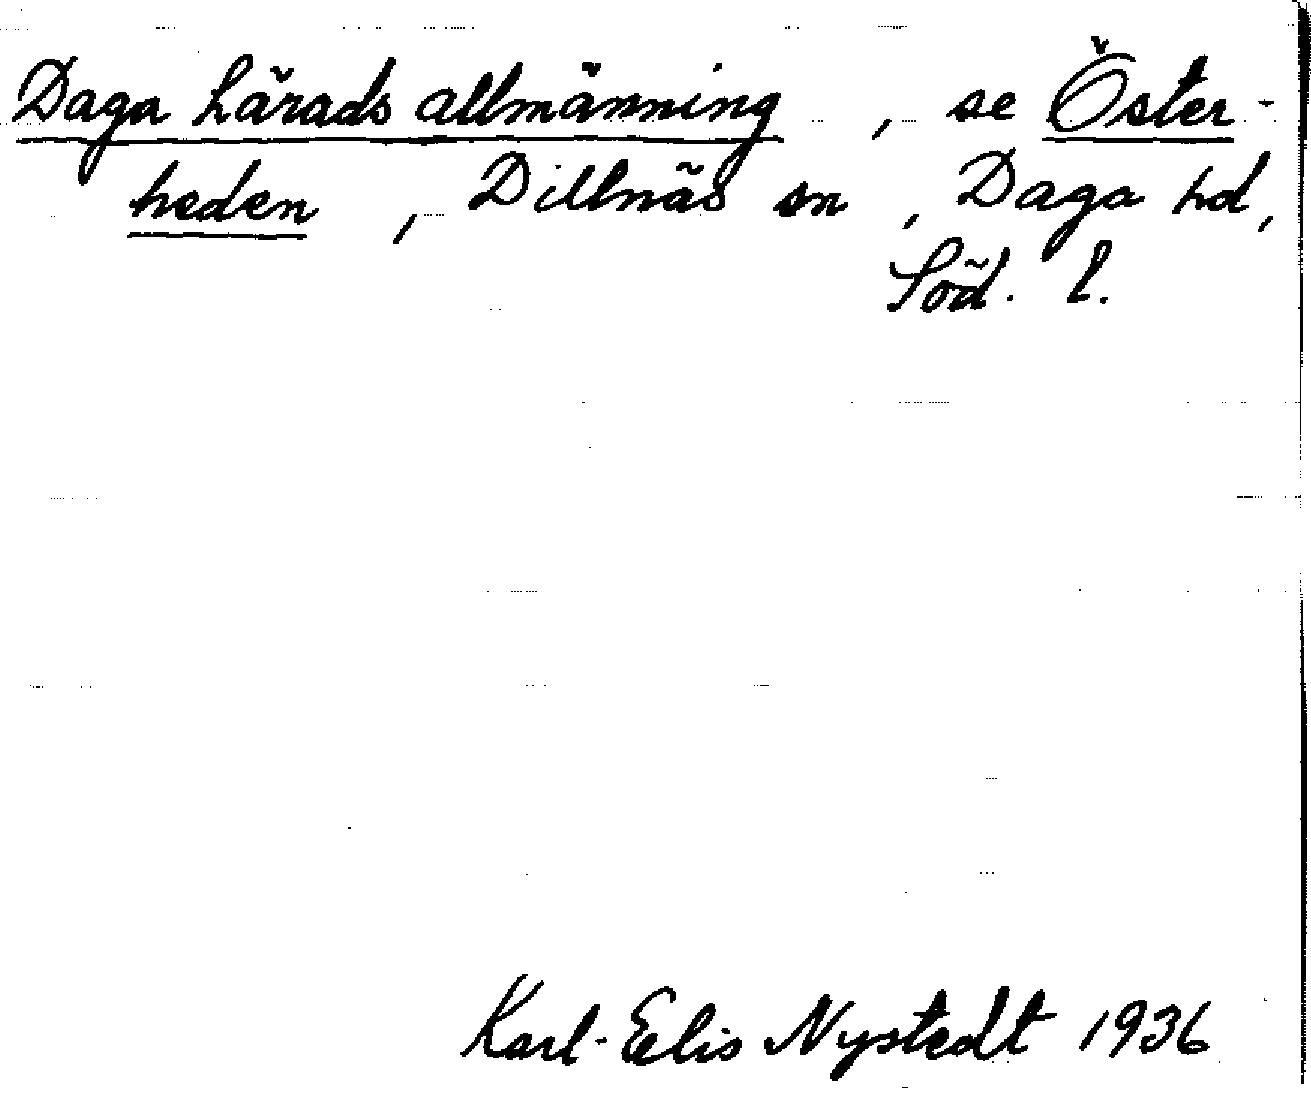 Daga härads allmänning, se Öster-
heden, Dillnäs sn, Daga hd,
Söd. l.
Karl-Elis Nystedt 1936